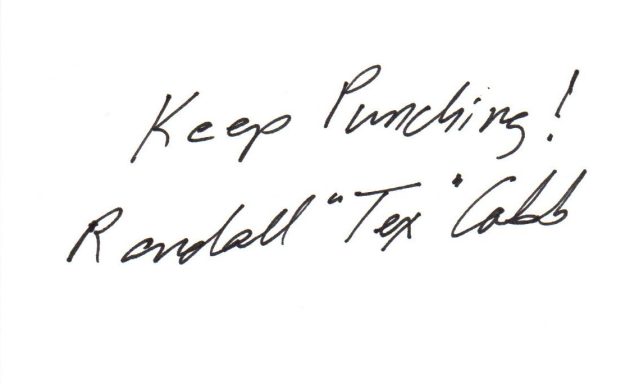 Keep Punching!
Randall "Tex" Cobb